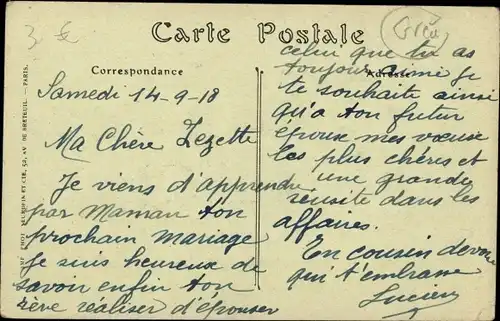 Carte Postale
Correspondance
Adresse
Samedi 14-9-18
Ma Chère Zezette
Je viens d'apprendre
par Maman ton
prochain mariage
Je suis heureux de
savoir enfin ton
rève réaliser d'épouser
celui que tu as
toujour aimé je
te souhaite ainsi
qu'a ton futur
époux mes vœux
les plus chères et
une grande
réusite dans les
affaires.
En cousin devoué
qui t'embrasse
Lucien
ET CIE, 52, AV. DE BRETEUIL. — PARIS.